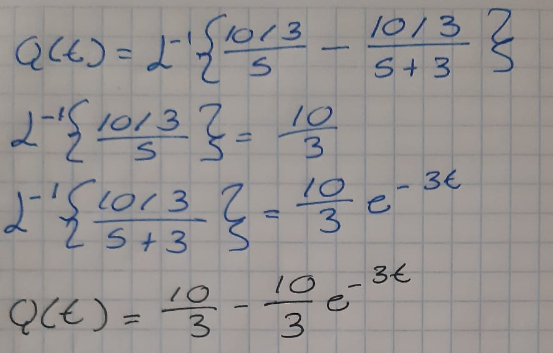 Q(t) = ℒ⁻¹{ (10/3)/s − (10/3)/(s+3) }
ℒ⁻¹{ (10/3)/s } = 10/3
ℒ⁻¹{ (10/3)/(s+3) } = 10/3 e^(−3t)
Q(t) = 10/3 − 10/3 e^(−3t)